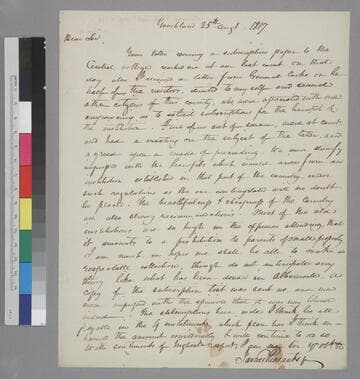 Goochland 25th Augt. 1817
Dear Sir
Your letter covering a subscription paper to the
Central college reached me at our last court. on that
day also I received a letter from General Cocke on be
half of the visitors, directed to myself and several
other citizens of this county, who were appointed with me
empowering us to solicit subscriptions for the benefit of
the institution. Five of us out of seven were at court
and had a meeting on the subject of the letter and
agreed upon a mode of proceeding. We were strongly
impressed with the benefits which would arise from an
institution established in this part of the country, under
such regulations as the one contemplated will no doubt
be placed. The healthfulness & cheapness of the country
are also strong recommendations. Most of the old
institutions are so high in the expences attending, that
it amounts to a prohibition to parents of small property
I am much in hopes we shall be able to make a
respectable collection, though do not anticipate any
thing like what has been done in Albemarle. a
copy of the subscription that was sent us, and we
were impressed with the opinion that it was very liberal
indeed. The subscriptions here will I think be all
payable in the 4 instalments which plan has I think en-
hanced the amount considerably & will continue to do so
with sentiments of highest respect, I am dr Sir yr obt. St
James Pleasants jr